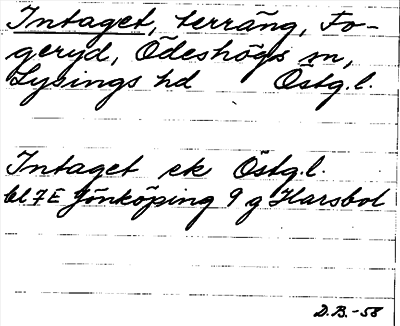 Intaget, terräng, Fo-
geryd, Ödeshögs sn,
Lysings hd Östg.l.
Intaget ek Östg.l.
bl 7E Jönköping 9 g Harsbol
D.B.-58